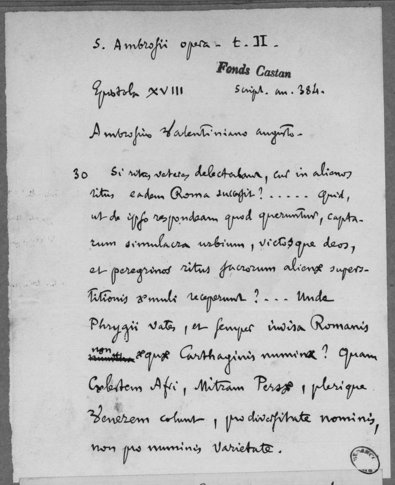 S. Ambrosii opera - t. II -
Fonds Castan
Epistola XVIII Script. an. 384.
Ambrosius Valentiniano augusto -
30 Si ritus veteres delectabant, cur in alienos
ritus eadem Roma successit? ..... Quid,
ut de ipso respondeam quod queruntur, capta-
rum simulacra urbium, victosque deos,
et peregrinos ritus sacrorum alienæ supers-
titionis æmuli receperunt? ... Unde
Phrygii vates, et semper invisa Romanis
non æquæ Carthaginis numina? Quam
Cælestem Afri, Mitram Persæ, plerique
Venerem colunt, pro diversitate nominis,
non pro numinis varietate.